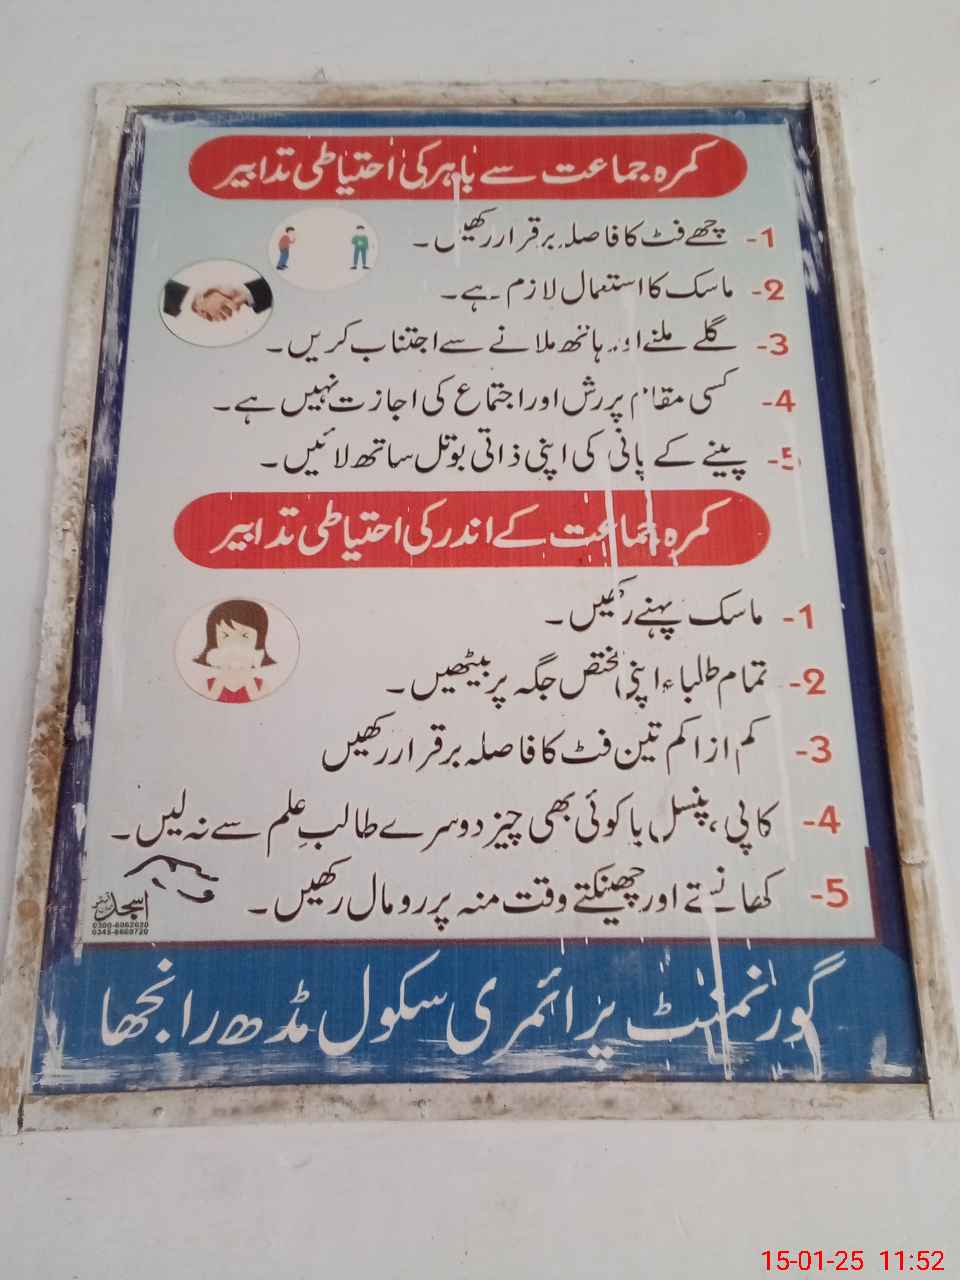 کمرہ جماعت سے باہر کی احتیاطی تدابیر
1- چھے فٹ کا فاصلہ برقرار رکھیں۔
2- ماسک کا استعمال لازم ہے۔
3- گلے ملنے اور ہاتھ ملانے سے اجتناب کریں۔
4- کسی مقام پر رش اور اجتماع کی اجازت نہیں ہے۔
5- پینے کے پانی کی اپنی ذاتی بوتل ساتھ لائیں۔
کمرہ جماعت کے اندر کی احتیاطی تدابیر
1- ماسک پہنے رکھیں۔
2- تمام طلباء اپنی مختص جگہ پر بیٹھیں۔
3- کم از کم تین فٹ کا فاصلہ برقرار رکھیں
4- کاپی، پنسل یا کوئی بھی چیز دوسرے طالبِ علم سے نہ لیں۔
5- کھانستے اور چھینکتے وقت منہ پر رومال رکھیں۔
اسجد
گورنمنٹ پرائمری سکول مڈھ رانجھا
15-01-25 11:52